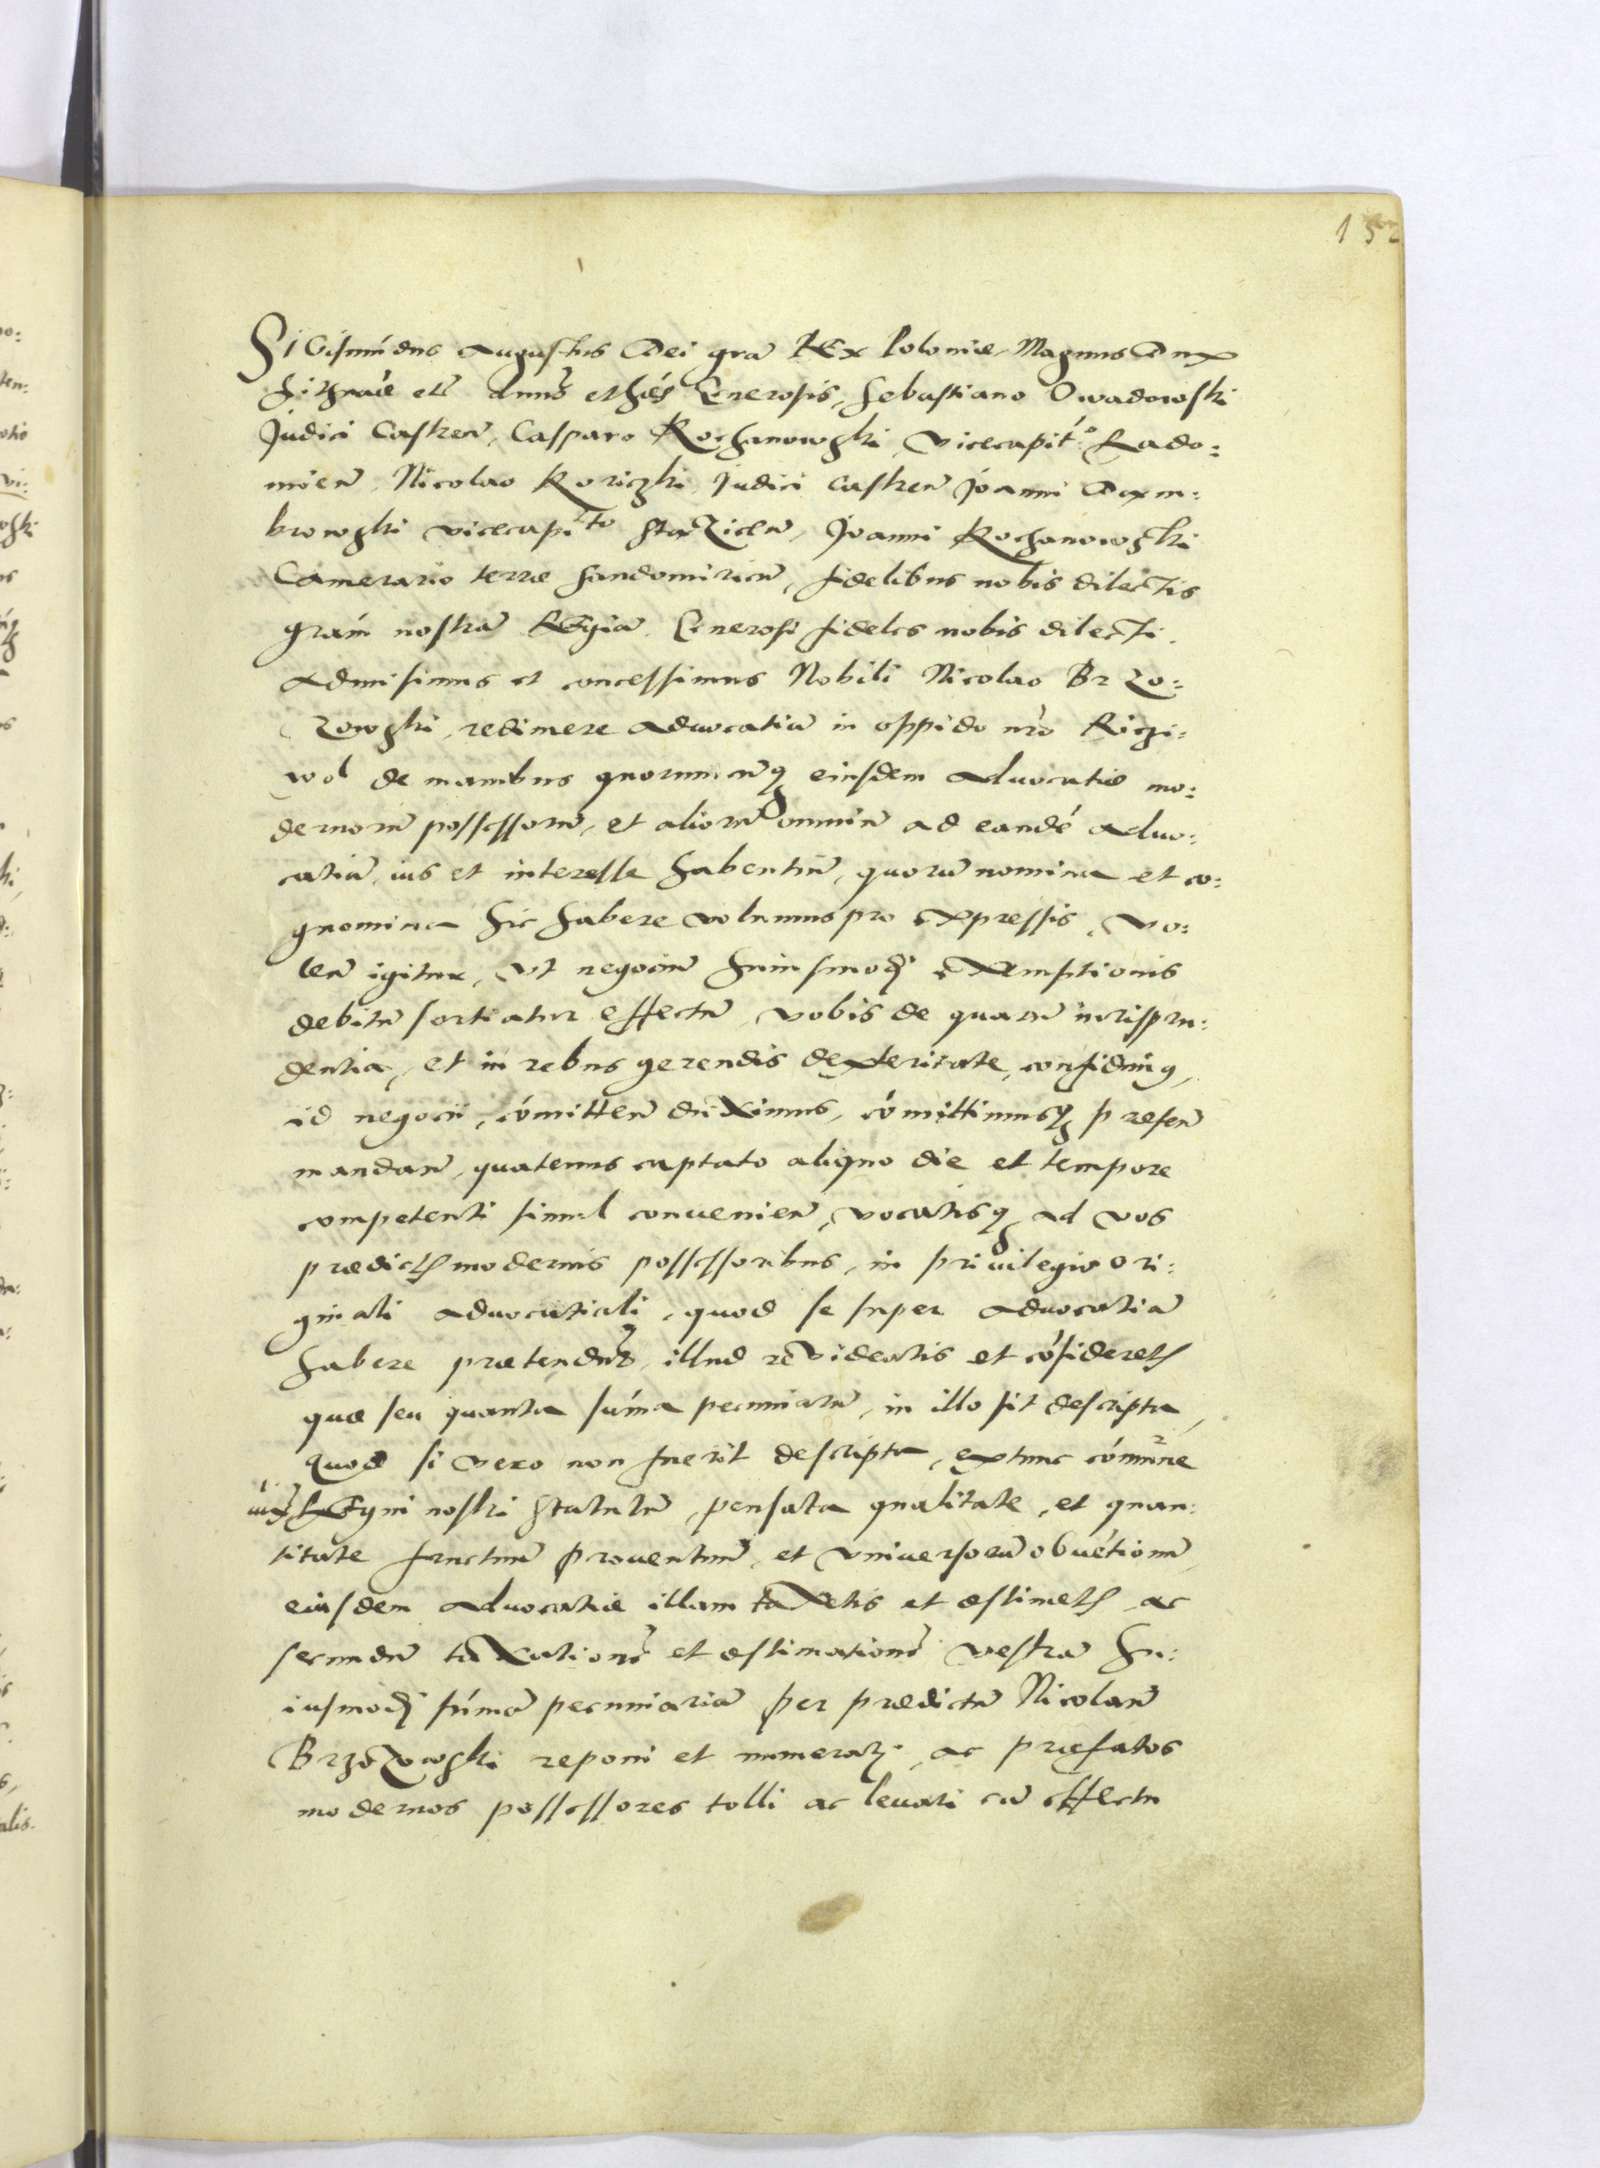 152
Sigismūdus Augustus Dei grā Rex Poloniæ, Magnus Dux
Lithuāe etc̃ dnūs et hēs Generosis, Sebastiano Owadowski
Judici Castreñ, Casparo Kochanowski, Vicecapit̃o Rado:
mieñ, Nicolao Koriczki Judici Castreñ Joanni Dxm:
browski vicecapit̃o Stęziceñ, Joanni Kochanowski
Camerario terræ Sandomirieñ, fidelibus nobis dilectis
grām nostrā Regiā. Generosi fideles nobis dilecti.
Admisimus et concessimus Nobili Nicolao Brzo:
zowski, redimere advocatiā in oppido nrō Riczi:
wol de manibus quorumcūq eiusdem advocatiæ mo:
dernorū possessorū, et aliorū omniū ad eandē advo:
catiā, ius et interesse habentiū, quorū nomina et co:
gnomina hic habere volumus pro expressis, Vo:
leñ igitur, ut negociū huiusmodi exemptionis
debitū sortiatur effectū, vobis de quarū iurispru:
dentia, et in rebus gerendis dexteritate, confidimꝰ,
id negocii, cōmitteñ duximus, cōmittimusq preseñ
mandañ, quatenus captato aliquo die et tempore
competenti simul convenieñ, vocatisq ad vos
prædictis modernis possessoribus, in privilegio ori:
ginali advocatiali, quod se super advocatia
habere prætendūt, illud revideatis et cōsideretis
quæ seu quanta sūma pecuniarū, in illo sit descripta,
Quod si vero non fuerit descripta, extunc cōmune
iuxta Regni nostri Statutū, pensata qualitate, et quan:
titate fructuū proventuū, et universorū obvētionū
eiusdem advocatiæ illam taxetis et æstimetis ac
secundū taxationē et æstimationē vestrā hu:
iusmodi sūmā pecuniariā per prædictū Nicolaū
Brzozowski reponi et numerari, ac præfatos
modernos possessores tolli ac levari cū effectu